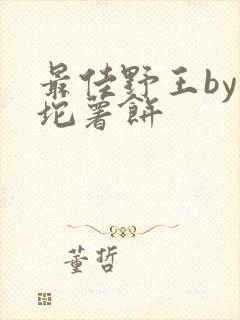 最佳野王by
坨薯餅
董哲